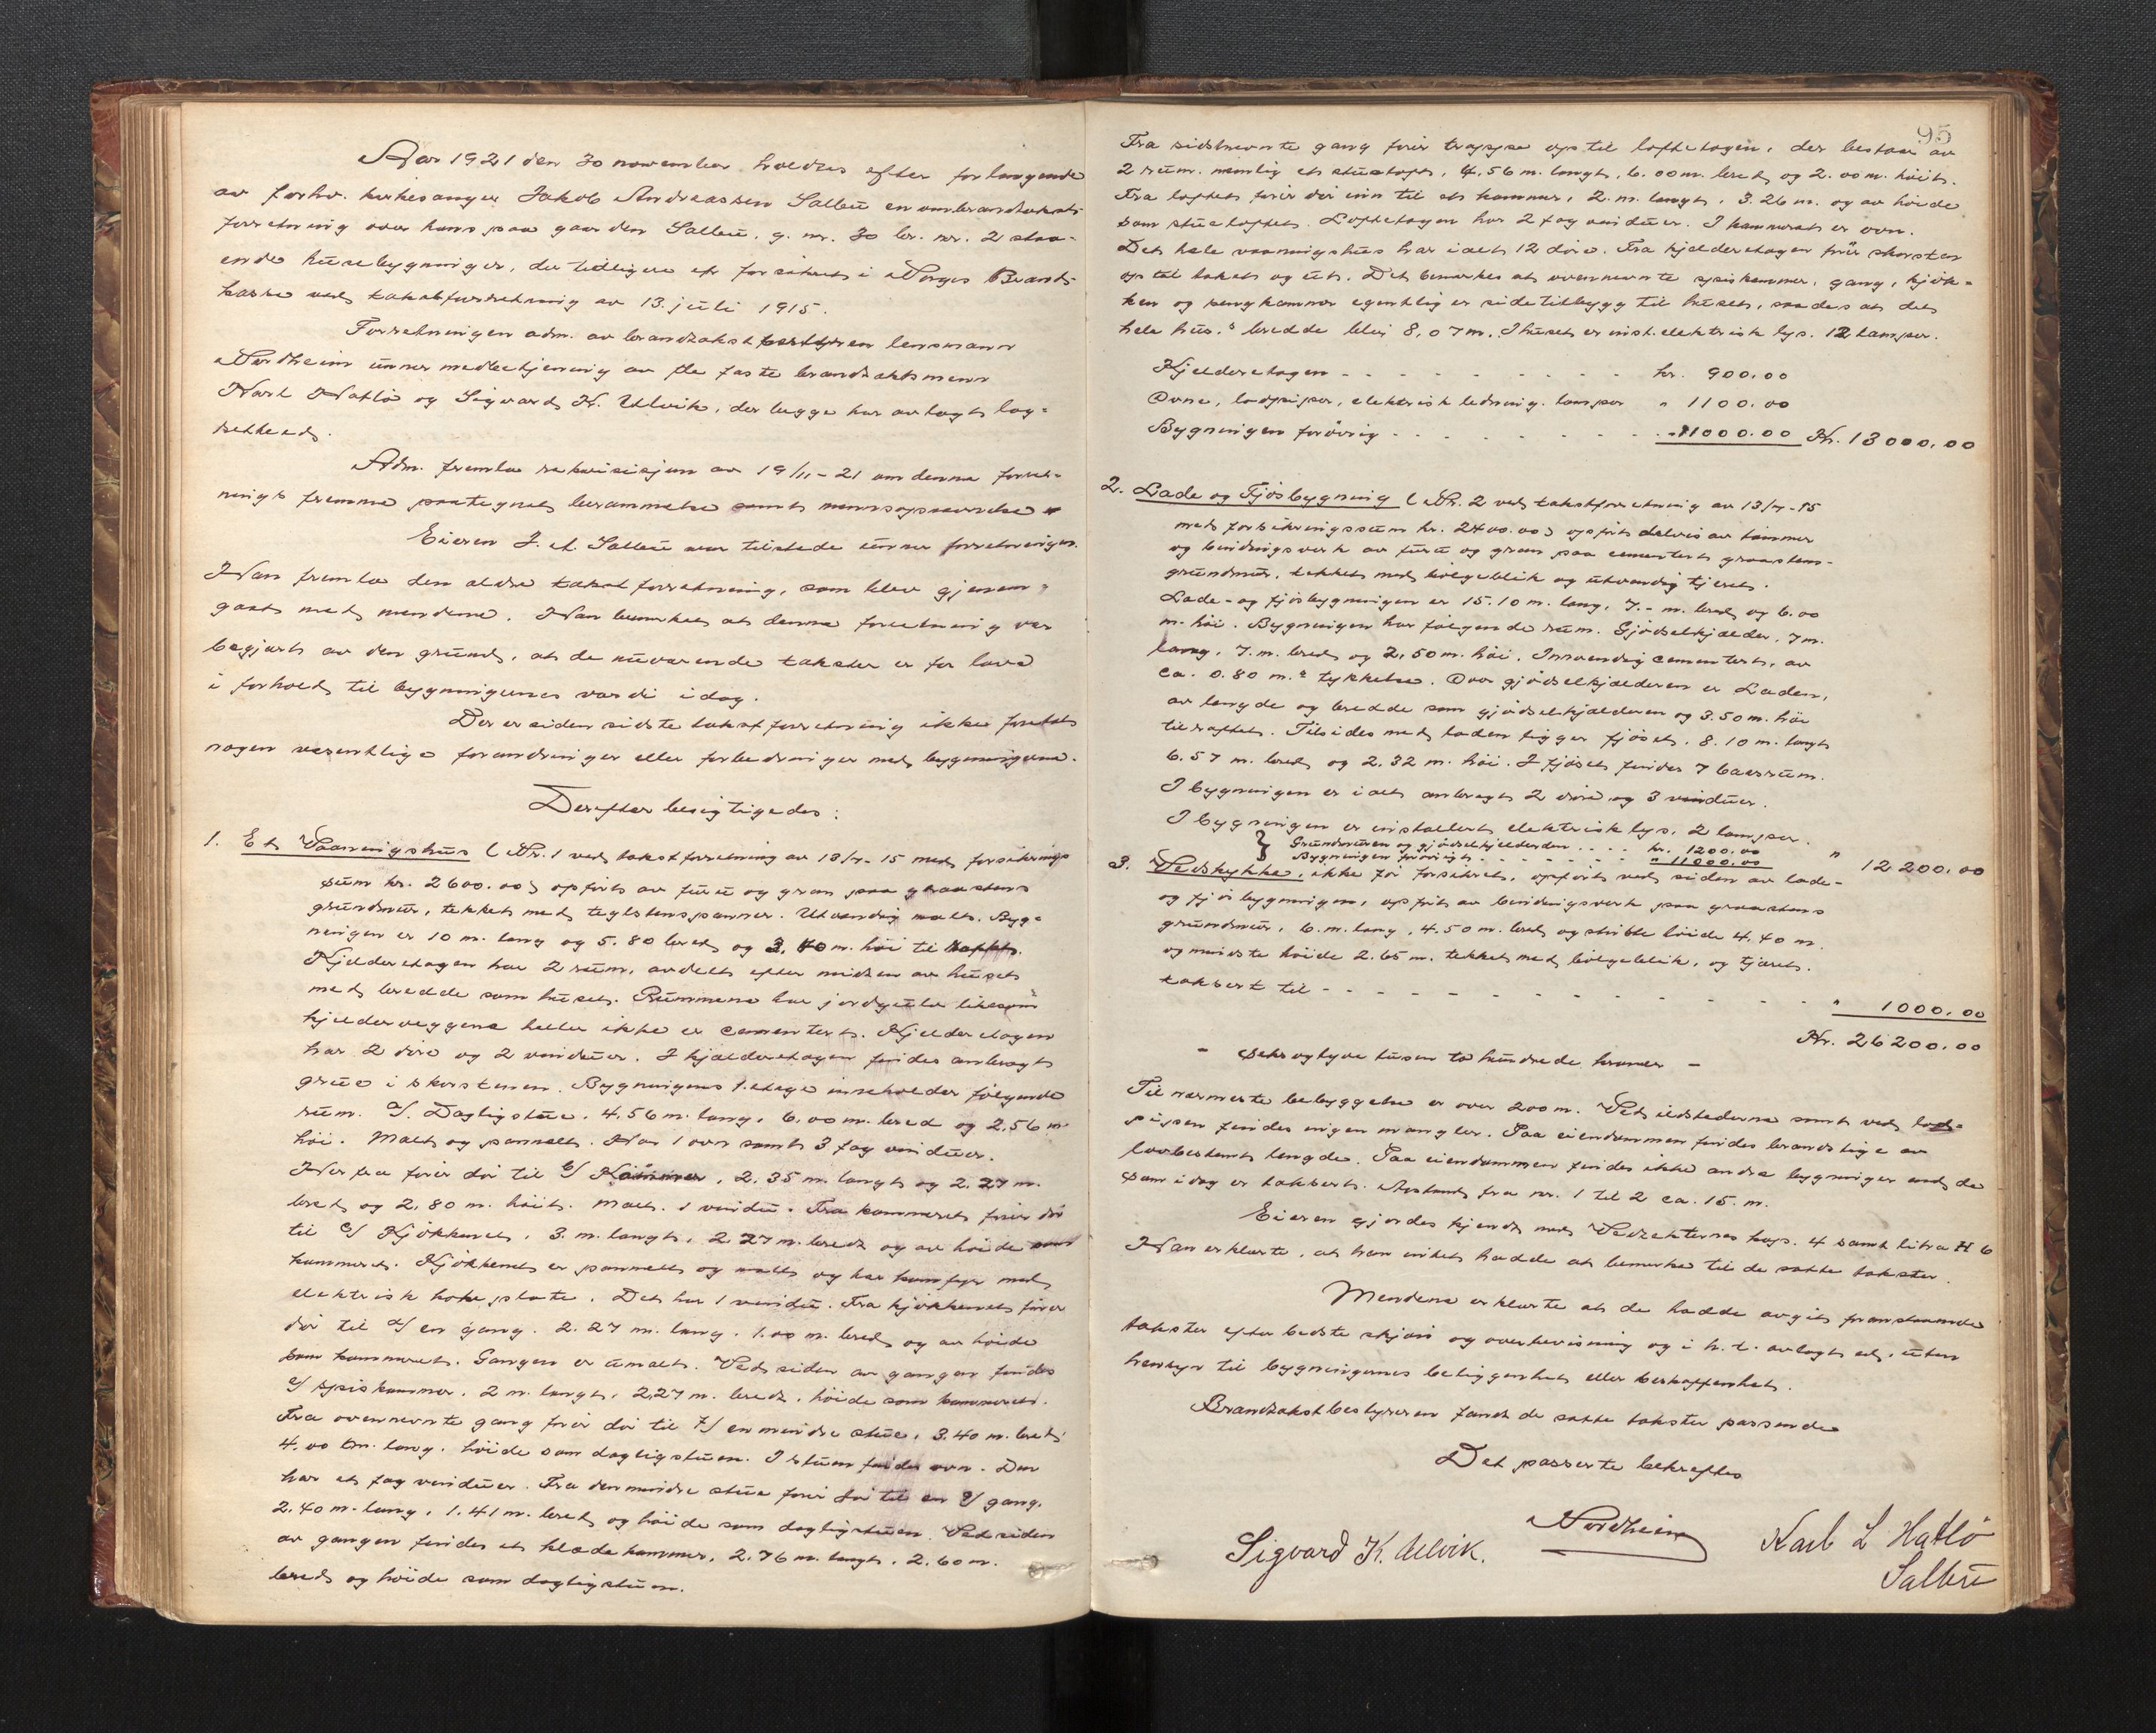 Aar 1921 den 30 november holdtes efter forlangende
av forhv. kirkesanger Jakob Andreassen Salbu en ombrandtakst-
forretning over hans paa gaarden Salbu, g. nr. 30 br. nr. 2 staa-
ende husebygninger, der tidligere er forsikret i Norges Brand-
kasse ved takstforretning av 13. juli 1915.
Forretningen adm. av brandtakstbestyreren lensmann
Nordheim unner medbetjening av de faste brandtakstmenn
Karl Hatlö og Sigvard K. Ulvik, der begge har avlagt lag-
rettesed.
Adm. fremla rekvisisjon av 19/11-21 om denne forret-
nings fremme paategnet berammelse samt mennsopnævnelse
Eieren J. A. Salbu var tilstede unner forretningen.
Han fremla den ældre takstforretning, som blev gjenem-
gaat med mendene. Han bemerket at denne forretning var
begjært av den grund, at de nuværende takster er for lave
i forhold til bygningenes værdi idag.
Der er siden sidste takstforretning ikke foretat
nogen væsentlige forandringer eller forbedringer med bygningene.
Derefter besigtigedes:
1. Et Vaaningshus (Nr. 1 ved takstforretning av 13/7-15 med forsikrings
sum kr. 2600.00) opfört av furu og gran paa graastens
grundmur, tekket med teglstenspanner. Utvendig malt. Byg-
ningen er 10 m. lang og 5.80 bred og 3.70 m. höi til raftet.
Kjelderetagen har 2 rum, avdelt efter midten av huset
med bredde som huset. Rummene har jordgulv likesom
kjelderveggene heller ikke er cementert. Kjelderetagen
har 2 döre og 2 vinduer. I kjælderetagen findes anbragt
grue i skorstenen. Bygningens 1. etage inneholder fölgende
rum. a/. Dagligstue, 4.56 m. lang, 6.00 m. bred og 2.56 m.
höi. Malt og pannelt. Har 1 ovn samt 3 fag vinduer.
Her fra förer dör til b/ Kammer, 2.35 m. langt og 2.27 m.
bred og 2.80 m. höit. Malt. 1 vindu. Fra kammeret förer dör
til c/ Kjökkenet, 3. m. langt, 2.27 m. bredt og av höide som
kammeret. Kjökkenet er pannelt og malt og har komfyr med
elektrisk kokeplate. Det har 1 vindu. Fra kjökkenet förer
dör til d/ en gang. 2.27 m. lang. 1.00 m. bred og av höide
som kammeret. Gangen er umalt. Ved siden av gangen findes
e/ spiskammer. 2 m. langt, 2.27 m. bredt, höide som kammeret.
Fra ovennevnte gang förer dör til f/ en mindre stue, 3.40 m. bred,
4.00 m. lang, höide som dagligstuen. I stuen findes ovn. Den
har et fag vinduer. Fra den mindre stue förer dör til en g/ gang,
2.40 m. lang, 1.41 m. bred og höide som dagligstuen. Ved siden
av gangen findes et klædekammer, 2.76 m. langt, 2.60 m.
bred og höide som dagligstuen.
95
Fra sidstnevnte gang förer trappe op til loftetagen, der bestaar av
2 rum. nemlig et stueloft, 4.56 m. langt, 6.00 m. bred og 2.00 m. höit.
Fra loftet förer dör inn til et kammer, 2. m. langt, 3.26 m. og av höide
som stueloftet. Loftetagen har 2 fag vinduer. I kammeret er ovn.
Det hele vaaningshus har ialt 12 döre. Fra kjelderetagen förer skorsten
op til taket og ut. Det bemerkes at ovennevnte spiskammer, gang, kjök-
ken og sengkammer egentlig er sidetilbygg til huset, saades at det
hele hus.s bredde blir 8,07 m. I huset er inst. elektrisk lys. 12 lamper.
Kjelderetagen - - - kr. 900.00
Ovne, lodpiper, elektrisk ledning. lamper " 1100.00
Bygningen forövrig - - - - 11000.00 Kr. 13000.00
2. Lade og Fjösbygning (Nr. 2 ved takstforretning av 13/7-15
med forsikringssum kr. 2400.00) opfört delvis av tømmer
og bindingsverk av furu og gran paa cementert graastens-
grundmur, tekket med bölgeblik og utvendig tjæret.
Lade- og fjösbygningen er 15.10 m. lang, 7.- m. bred og 6.00
m. höi. Bygningen har fölgende rum. Gjödselkjælder, 7 m.
lang, 7. m. bred og 2,50 m. höi. Innvendig cementert, av
ca. 0.80 m.s tykkelse. Over gjödselkjælderen er Laden,
av længde og bredde som gjödselkjælderen og 3.50 m. höi
til raftet. Tilsides med laden ligger fjöset, 8.10 m. langt
6.57 m. bred og 2.32 m. höi. I fjöset findes 7 baasrum.
I bygningen er ialt anbragt 2 döre og 3 vinduer.
I bygningen er installert elektrisk lys, 2 lamper.
} Grundmuren og gjödselkjelderden . . . . kr. 1200.00
Bygningen forövrigt - - - - " 11000.00 " 12200.00
3. Vedskykke, ikke för forsikret, opfört ved siden av lade-
og fjösbygningen, opfört av bindingsverk paa graastens
grundmur, 6. m. lang, 4.50 m. bred og störste höide 4.40 m.
og mindste höide 2.65 m. tekket med bölgeblik, og tjæret.
takstert til - - - - " 1000.00
Kr. 26200.00
- seksogtyve tusen to hundrede kroner -
Til nærmeste bebyggelse er over 200 m. Ved ildstederne samt ved lod-
pipen findes ingen mangler. Paa eiendommen findes brandstige av
lovbestemt længde. Paa eiendommen findes ikke andre bygninger end de
som idag er takstert. Avstand fra nr. 1 til 2 ca. 15. m.
Eieren gjordes kjendt med Vedtekternes kap. 4 samt litra H 6
Han erklærte, at han intet hadde at bemerke til de satte takster.
Mendene erklærte at de hadde avgit framstaaende
takster efter bedste skjön og overbevisning og i h. t. avlagt ed, uten
hensyn til bygningernes beliggenhet eller beskaffenhet.
Brandtakstbestyreren fandt de satte takster passende
Det passerte bekreftes
Nordheim
Sigvard K. Ulvik. Karl L Hatlö
Salbu